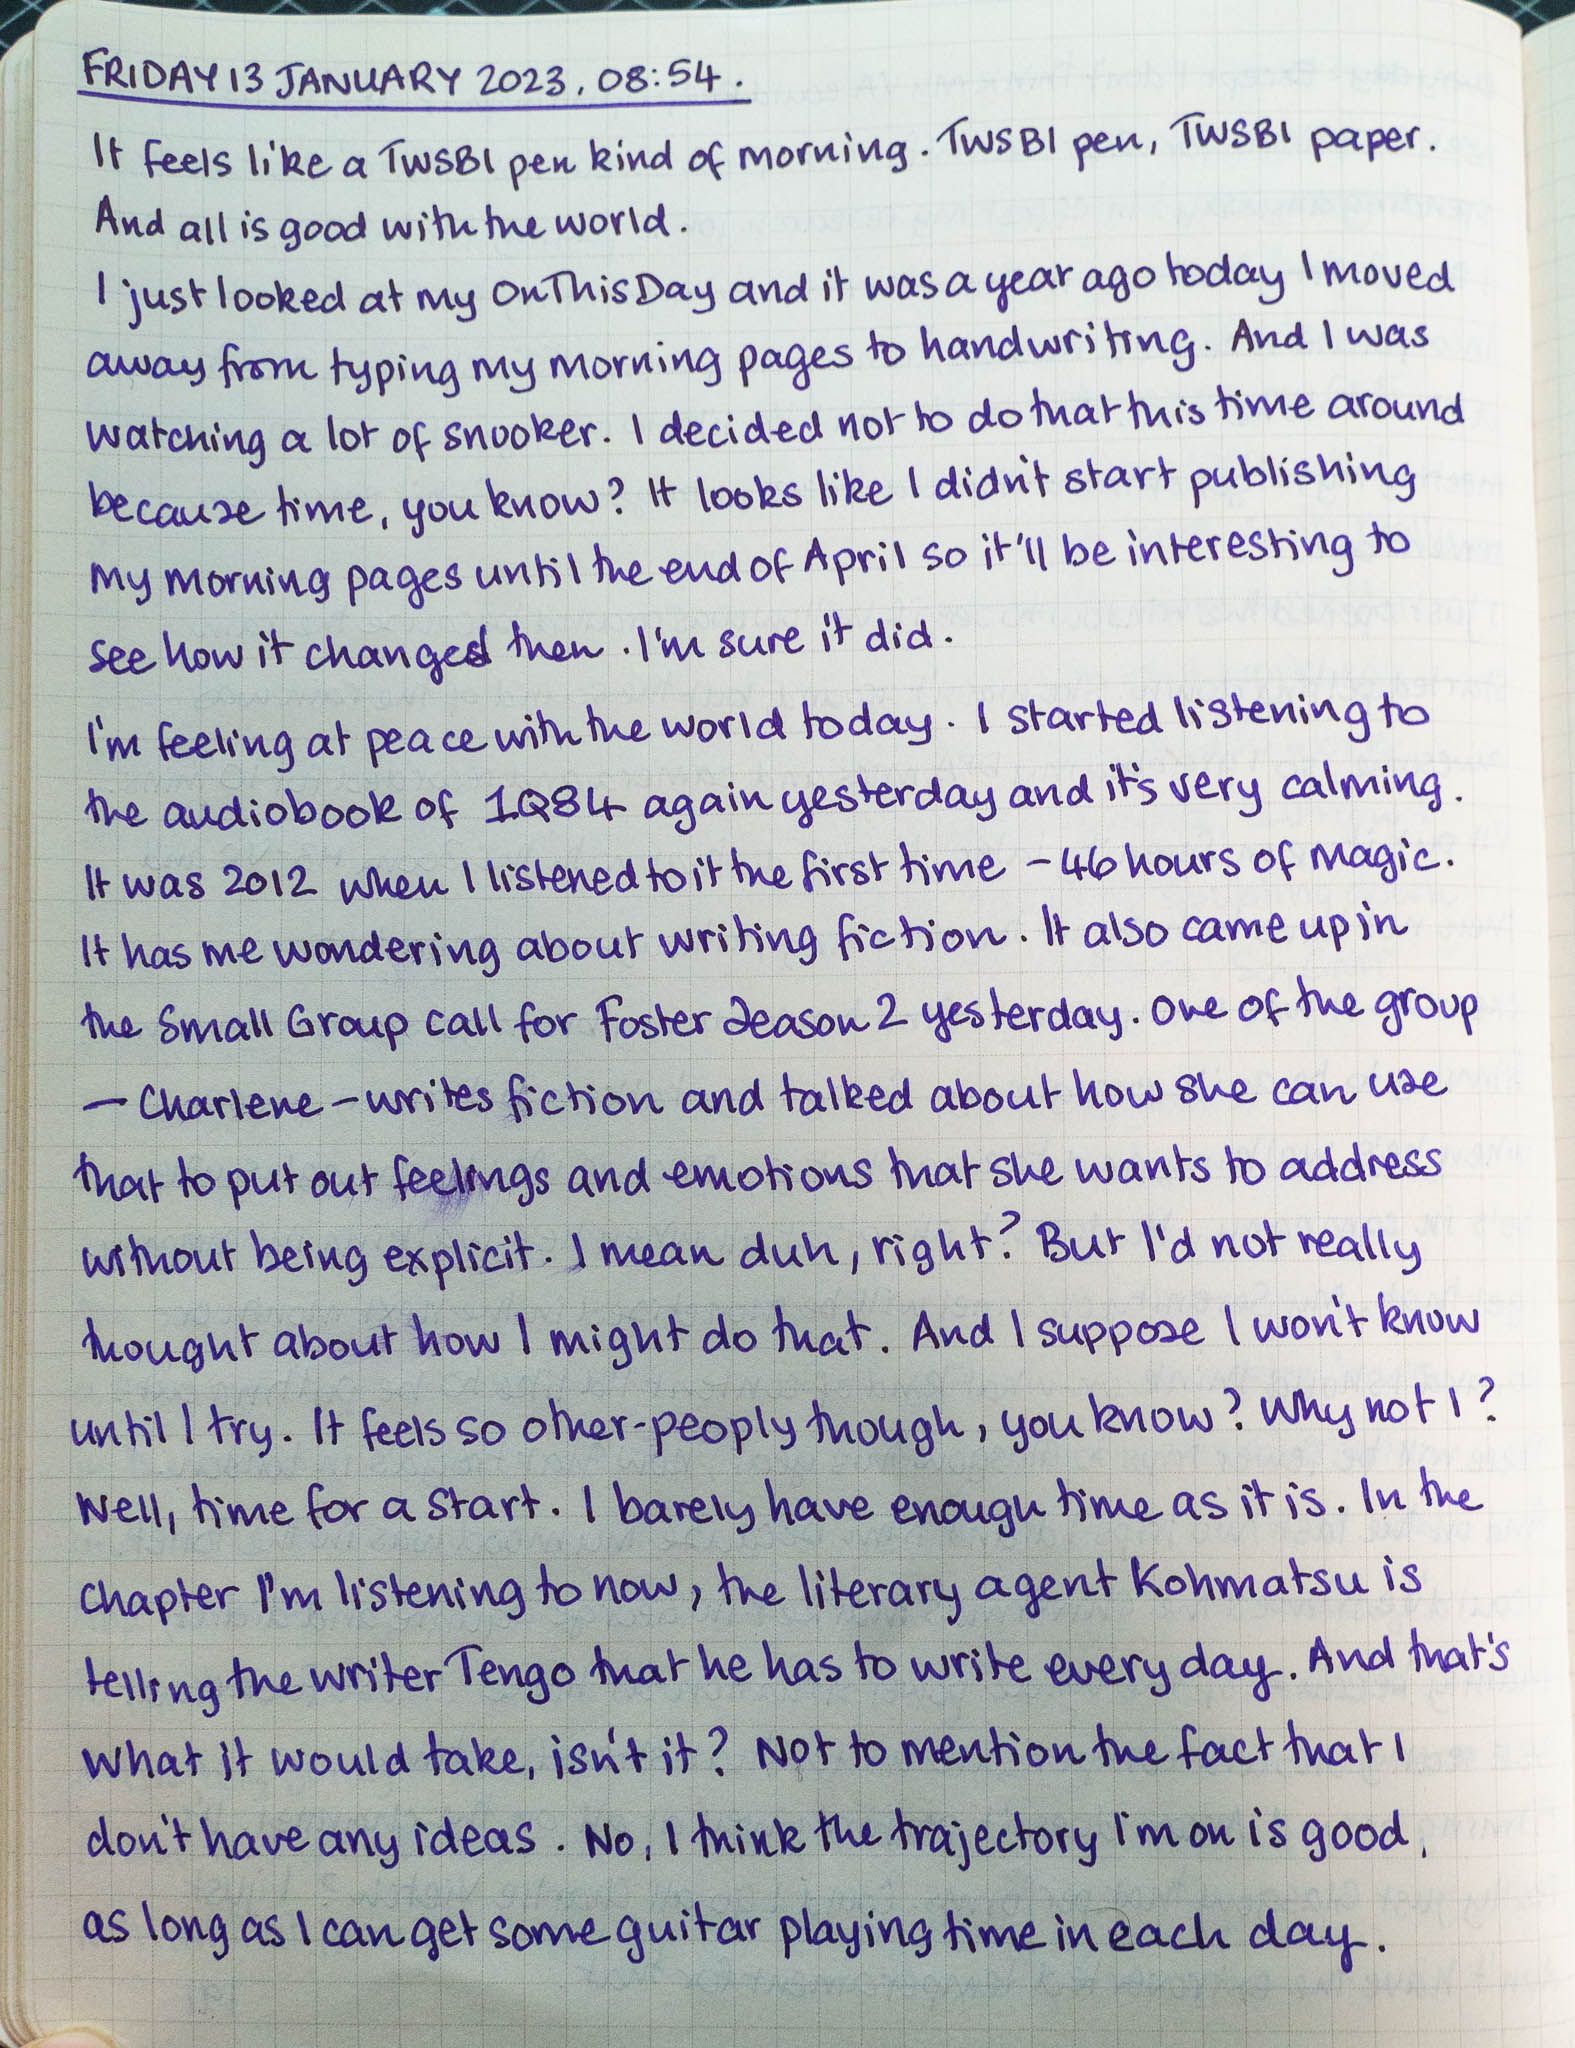 FRIDAY 13 JANUARY 2023, 08:54.
It feels like a TWSBI pen kind of morning. TWSBI pen, TWSBI paper.
And all is good with the world.
I just looked at my OnThisDay and it was a year ago today I moved
away from typing my morning pages to handwriting. And I was
watching a lot of snooker. I decided not to do that this time around
because time, you know? It looks like I didn't start publishing
my morning pages until the end of April so it'll be interesting to
see how it changed then. I'm sure it did.
I'm feeling at peace with the world today. I started listening to
the audiobook of 1Q84 again yesterday and it's very calming.
It was 2012 when I listened to it the first time - 46 hours of magic.
It has me wondering about writing fiction. It also came up in
the Small Group call for Foster Season 2 yesterday. One of the group
- Charlene - writes fiction and talked about how she can use
that to put out feelings and emotions that she wants to address
without being explicit. I mean duh, right? But I'd not really
thought about how I might do that. And I suppose I won't know
until I try. It feels so other-peoply though, you know? Why not I?
Well, time for a start. I barely have enough time as it is. In the
chapter I'm listening to now, the literary agent Kohmatsu is
telling the writer Tengo that he has to write every day. And that's
what it would take, isn't it? Not to mention the fact that I
don't have any ideas. No, I think the trajectory I'm on is good,
as long as I can get some guitar playing time in each day.